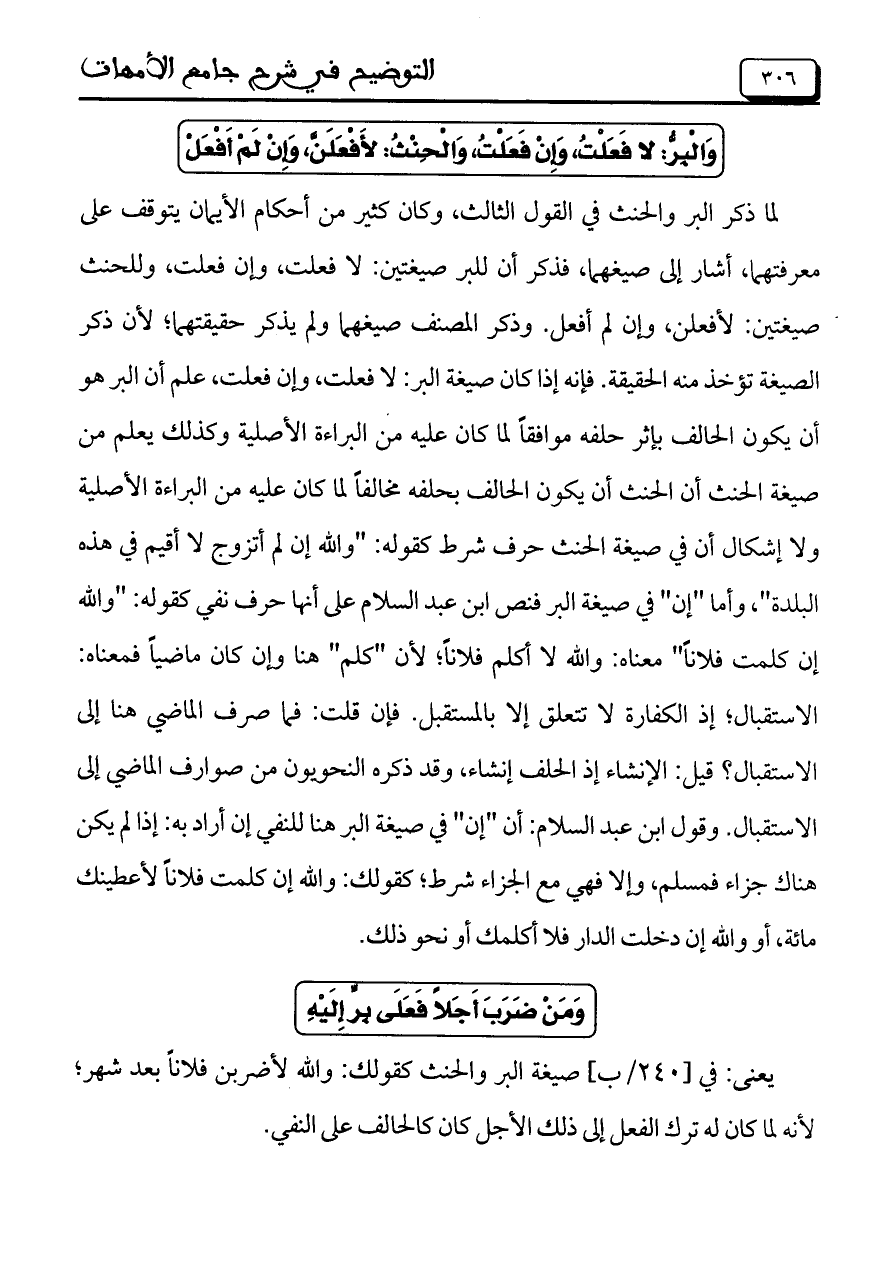 ٣٠٦
التوضيح في شرح جامع الأمهات
وَالْبِرُّ: لا فَعَلْتُ، وَإِنْ فَعَلْتُ، وَالْحِنْثُ: لأَفْعَلَنَّ، وَإِنْ لَمْ أَفْعَلْ
لما ذكر البر والحنث في القول الثالث، وكان كثير من أحكام الأيمان يتوقف على
معرفتهما، أشار إلى صيغهما، فذكر أن للبر صيغتين: لا فعلت، وإن فعلت، وللحنث
صيغتين: لأفعلن، وإن لم أفعل. وذكر المصنف صيغهما ولم يذكر حقيقتهما؛ لأن ذكر
الصيغة تؤخذ منه الحقيقة. فإنه إذا كان صيغة البر: لا فعلت، وإن فعلت، علم أن البر هو
أن يكون الحالف بإثر حلفه موافقاً لما كان عليه من البراءة الأصلية وكذلك يعلم من
صيغة الحنث أن الحنث أن يكون الحالف بحلفه مخالفاً لما كان عليه من البراءة الأصلية
ولا إشكال أن في صيغة الحنث حرف شرط كقوله: "والله إن لم أتزوج لا أقيم في هذه
البلدة"، وأما "إن" في صيغة البر فنص ابن عبد السلام على أنها حرف نفي كقوله: "والله
إن كلمت فلاناً" معناه: والله لا أكلم فلاناً؛ لأن "كلم" هنا وإن كان ماضياً فمعناه:
الاستقبال؛ إذ الكفارة لا تتعلق إلا بالمستقبل. فإن قلت: فما صرف الماضي هنا إلى
الاستقبال؟ قيل: الإنشاء إذ الحلف إنشاء، وقد ذكره النحويون من صوارف الماضي إلى
الاستقبال. وقول ابن عبد السلام: أن "إن" في صيغة البر هنا للنفي إن أراد به: إذا لم يكن
هناك جزاء فمسلم، وإلا فهي مع الجزاء شرط؛ كقولك: والله إن كلمت فلاناً لأعطينك
مائة، أو والله إن دخلت الدار فلا أكلمك أو نحو ذلك.
وَمَنْ ضَرَبَ أَجَلاً فَعَلَى بِرٍّ إِلَيْهِ
يعنى: في [٢٤٠/ ب] صيغة البر والحنث كقولك: والله لأضربن فلاناً بعد شهر؛
لأنه لما كان له ترك الفعل إلى ذلك الأجل كان كالحالف على النفي.